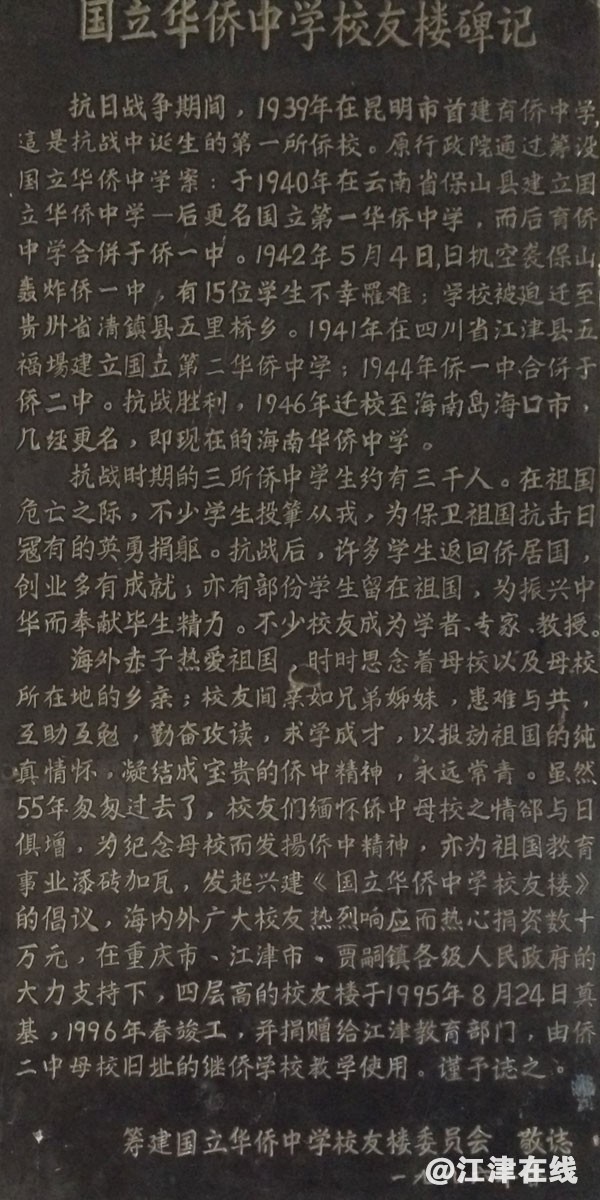 国立华侨中学校友楼碑记
抗日战争期间，1939年在昆明市首建育侨中学，
這是抗战中诞生的第一所侨校。原行政院通过筹设
国立华侨中学案：于1940年在云南省保山县建立国
立华侨中学—后更名国立第一华侨中学，而后育侨
中学合併于侨一中。1942年5月4日，日机空袭保山
轰炸侨一中，有15位学生不幸罹难；学校被迫迁至
贵州省清鎮县五里桥乡。1941年在四川省江津县五
福場建立国立第二华侨中学；1944年侨一中合併于
侨二中。抗战胜利，1946年迁校至海南岛海口市，
几经更名，即现在的海南华侨中学。
抗战时期的三所侨中学生约有三千人。在祖国
危亡之际，不少学生投筆从戎，为保卫祖国抗击日
寇有的英勇捐躯。抗战后，许多学生返回侨居国，
创业多有成就；亦有部份学生留在祖国，为振兴中
华而奉献毕生精力。不少校友成为学者、专家、教授。
海外赤子热爱祖国，时时思念着母校以及母校
所在地的乡亲；校友间亲如兄弟姊妹，患难与共，
互助互勉，勤奋攻读，求学成才，以报効祖国的纯
真情怀，凝结成宝贵的侨中精神，永远常青。虽然
55年匆匆过去了，校友们缅怀侨中母校之情郤与日
俱增，为纪念母校而发揚侨中精神，亦为祖国教育
事业添砖加瓦，发起兴建《国立华侨中学校友楼》
的倡议，海内外广大校友热烈响应而热心捐资数十
万元，在重庆市、江津市、贾嗣镇各级人民政府的
大力支持下，四层高的校友楼于1995年8月24日奠
基，1996年春竣工，并捐赠给江津教育部门，由侨
二中母校旧址的继侨学校教学使用。谨予誌之。
筹建国立华侨中学校友楼委员会 敬誌
一九
@江津在线